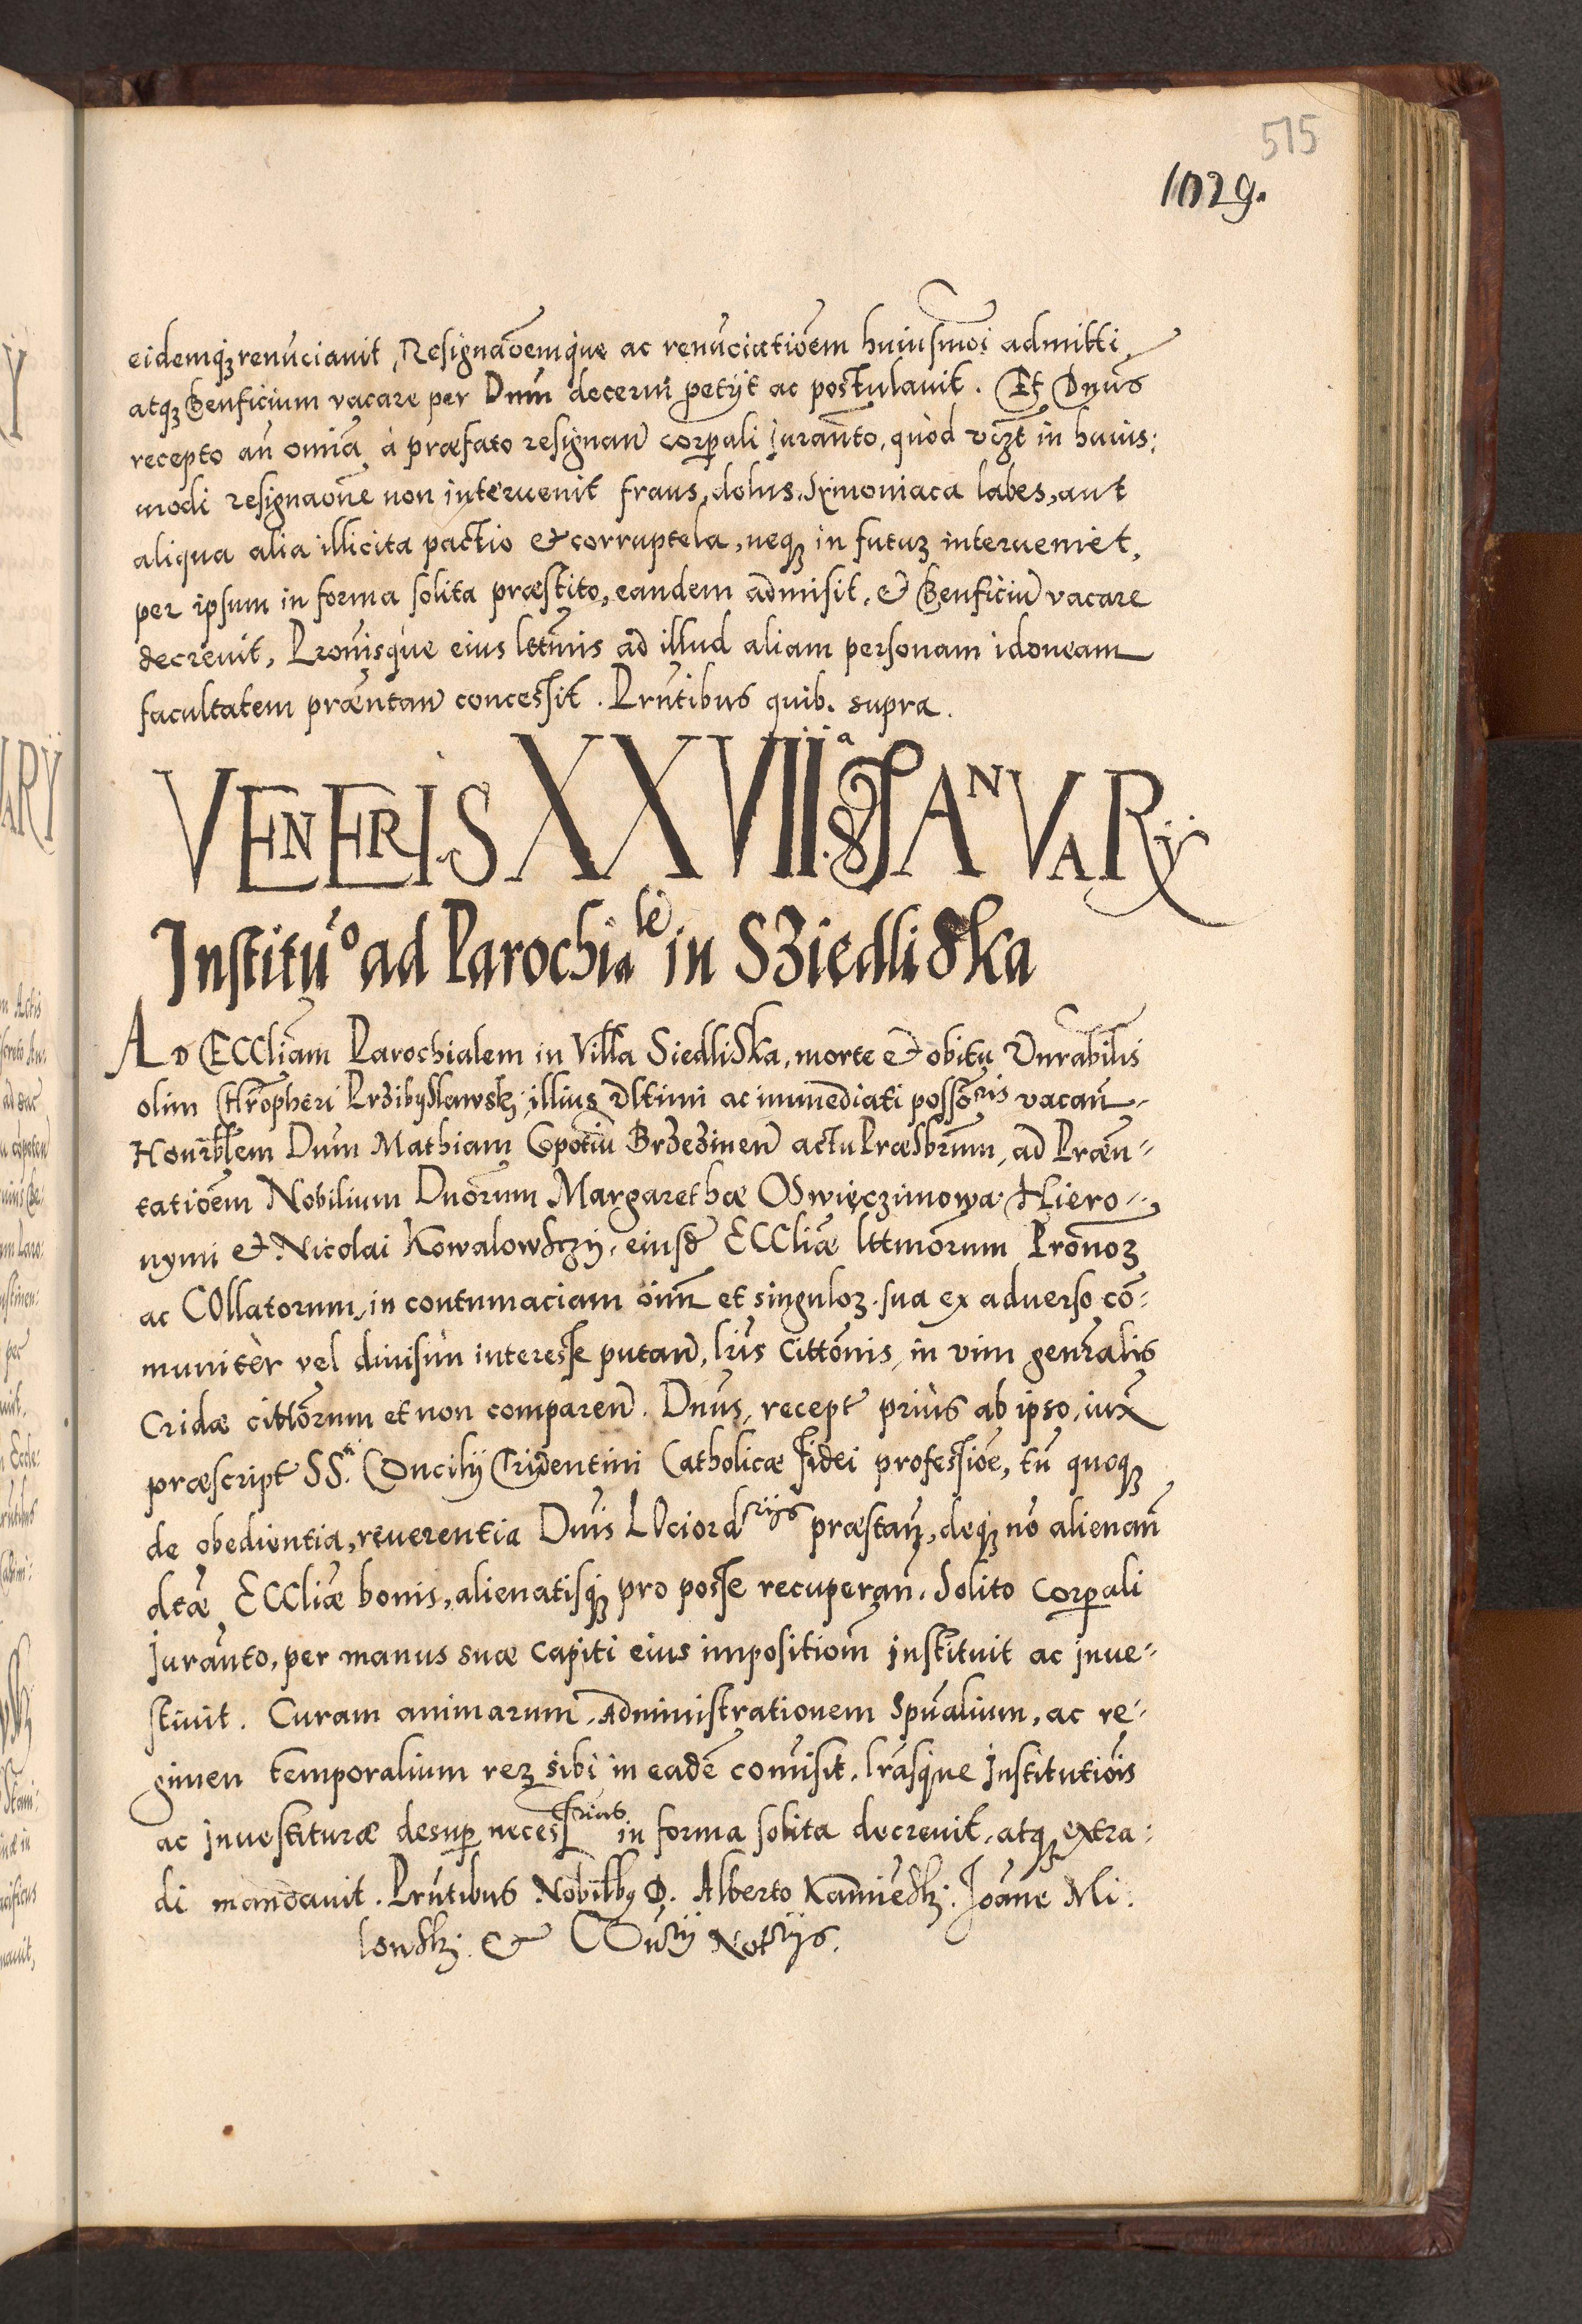 515
1029.
eidemqȝ renuciavit, Resignaōemque ac renūciatiōem huiusmōi admitti
atqȝ Benficium vacare per Dnm̄ decerni petijt ac postulavit. Et Dnūs
recepto an̄ omīa à præfato resignan̄ corpali Juramto, quòd vczt in huius:
modi resignaōne non intervenit fraus, dolus, Symoniaca labes, aut
aliqua alia illicita pactio & corruptela, neqȝ in futuȝ interveniet,
per ipsum in forma solita præstito, eandem admisit, & Benficiū vacare
decrevit, Pronisque eius lttmis ad illud aliam personam idoneam
facultatem præntan̄ concessit. Prn̄tibus quib. supra.
VENERIS XXVIIIa JANVARY
Institu͞o ad Parochialē in SZiedliska
AD ECCliam Parochialem in Villa Siedliska, morte & obitu Vnrabilis
olim Chrōpheri Przibyslawskj, illius vltimi ac immediati possōris vacan̄
Honrblem Dnm̄ Mathiam Brzezinen̄ actu Præsbrum, ad Præn-
tatiōem Nobilium Dnōrum Margarethæ Oswięczimowa Hiero-
nymi & Nicolai Kowalowsczy, eiusd̄ ECCliæ lttmōrum Pronoȝ
ac COllatorum, in contumaciam oīm et singuloȝ sua ex adverso cō:
munitèr vel divisìm interesse putan̄, lrīs Cittōnis, in vim genralis
Cridæ cittōrum et non comparen̄. Dnūs, recept̄ priùs ab ipso, iux̄
præscript̄ SS.ti Concilij Tridentini Catholicæ fidei professiōe, tū quoqȝ
de obedientia, reverentia Dnīs LOciordrijs præstan̄, deqȝ nō alienan̄
dtæ ECCliæ bonis, alienatisqȝ pro posse recuperan̄. Solito Corpali
Juramto, per manus suæ capiti eius impositiom̄ instituit ac inve-
stivit. Curam animarum, Administrationem Spualium, ac re-
gimen temporalium reȝ sibi in eadē comisit, lrāsque Institutiōis
ac Investituræ desup necessrias in forma solita decrevit, atqȝ extra:
di mandavit. Prn̄tibus Nobilbȝ D. Alberto Kamienskj. Joāne Mi:
lowskj. & Notrijs.